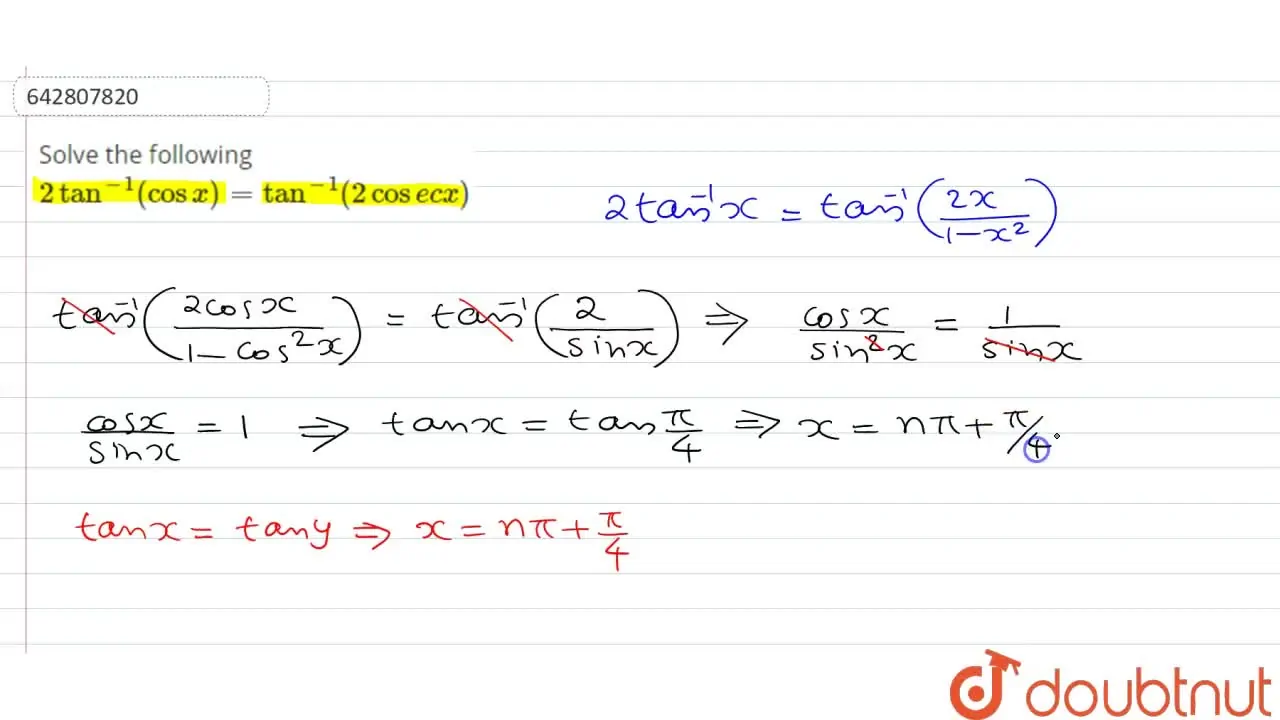 642807820
Solve the following
2 tan⁻¹(cos x) = tan⁻¹(2 cos ecx)
2tan⁻¹x = tan⁻¹(2x/1-x²)
tan⁻¹(2cosx/1-cos²x) = tan⁻¹(2/sinx) ⇒ cosx/sin²x = 1/sinx
cosx/sinx = 1 ⇒ tanx = tan π/4 ⇒ x = nπ + π/4
tanx = tany ⇒ x = nπ + π/4
doubtnut